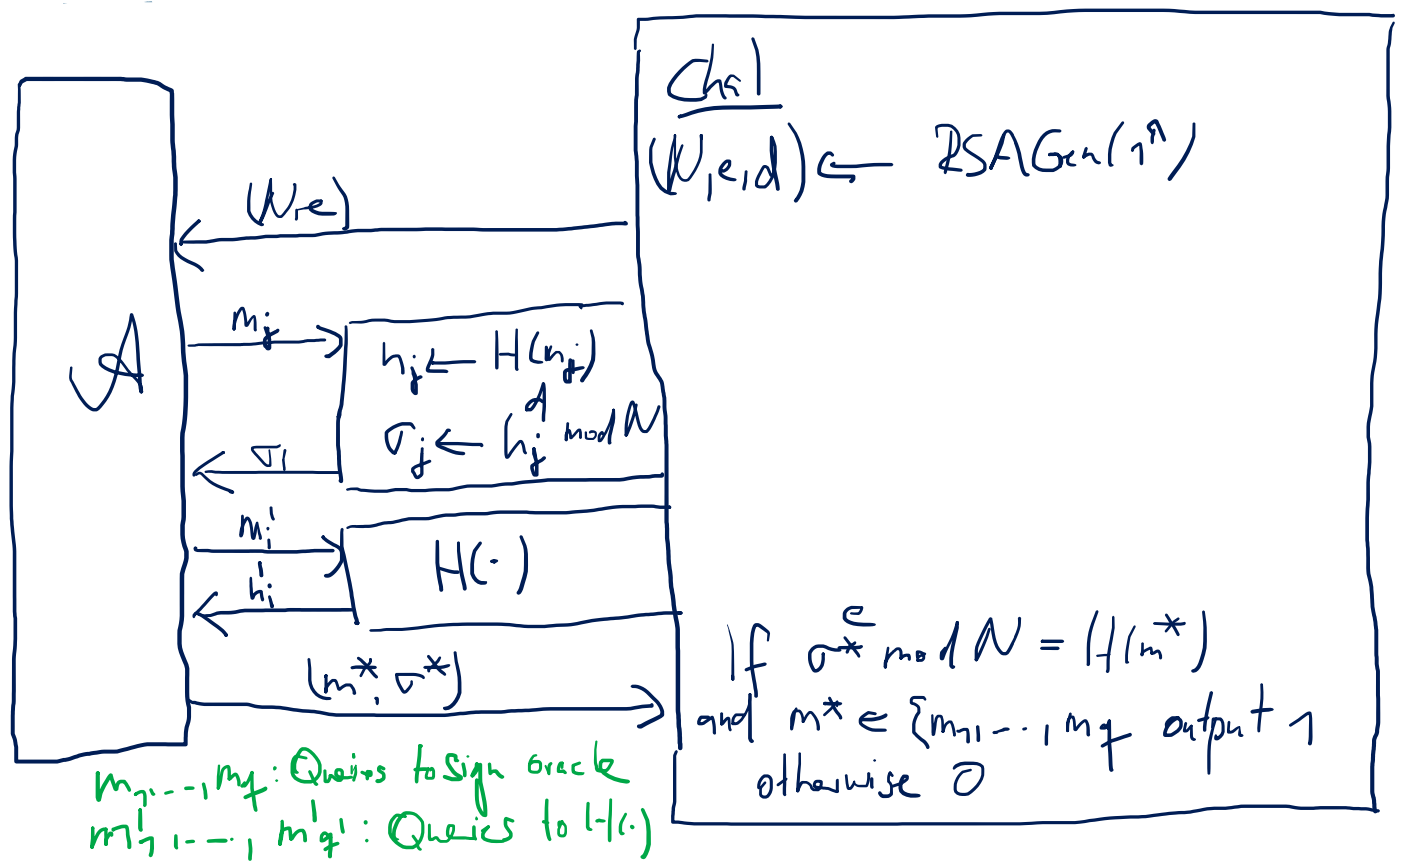 Chal
(N,e,d) ← RSAGen(1ⁿ)
(N,e)
A
m_j
h_j ← H(m_j)
σ_j ← h_j^d mod N
σ_i
m'_i
H(·)
h'_i
(m*, σ*)
If σ*^e mod N = H(m*)
and m* ∈ {m_1,...,m_q output 1
otherwise 0
m_1,...,m_q: Queires to sign oracle
m'_1,...,m'_q': Queries to H(·)